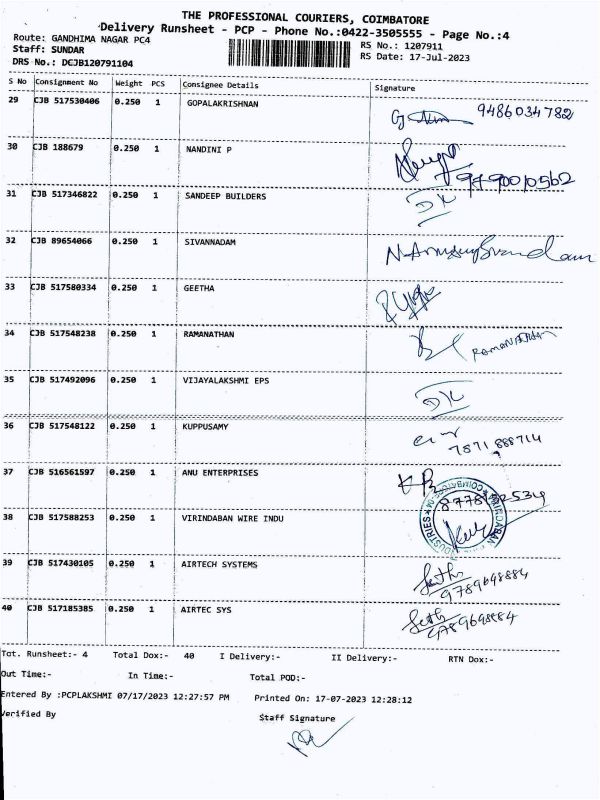 THE PROFESSIONAL COURIERS, COIMBATORE
Delivery Runsheet - PCP - Phone No.:0422-3505555 - Page No.:4
Route: GANDHIMA NAGAR PC4 RS No.: 1207911
Staff: SUNDAR RS Date: 17-Jul-2023
DRS No.: DCJB120791104
S No Consignment No Weight PCS Consignee Details Signature
29 CJB 517530406 0.250 1 GOPALAKRISHNAN 9486034782
30 CJB 188679 0.250 1 NANDINI P 9790010562
31 CJB 517346822 0.250 1 SANDEEP BUILDERS
32 CJB 89654066 0.250 1 SIVANNADAM
33 CJB 517580334 0.250 1 GEETHA
34 CJB 517548238 0.250 1 RAMANATHAN RAMANATHAN
35 CJB 517492096 0.250 1 VIJAYALAKSHMI EPS
36 CJB 517548122 0.250 1 KUPPUSAMY 7871888714
37 CJB 516561597 0.250 1 ANU ENTERPRISES
38 CJB 517588253 0.250 1 VIRINDABAN WIRE INDU
39 CJB 517430105 0.250 1 AIRTECH SYSTEMS 9789698884
40 CJB 517185385 0.250 1 AIRTEC SYS 9789698884
Tot. Runsheet:- 4 Total Dox:- 40 I Delivery:- II Delivery:- RTN Dox:-
Out Time:- In Time:- Total POD:-
Entered By :PCPLAKSHMI 07/17/2023 12:27:57 PM Printed On: 17-07-2023 12:28:12
Verified By Staff Signature